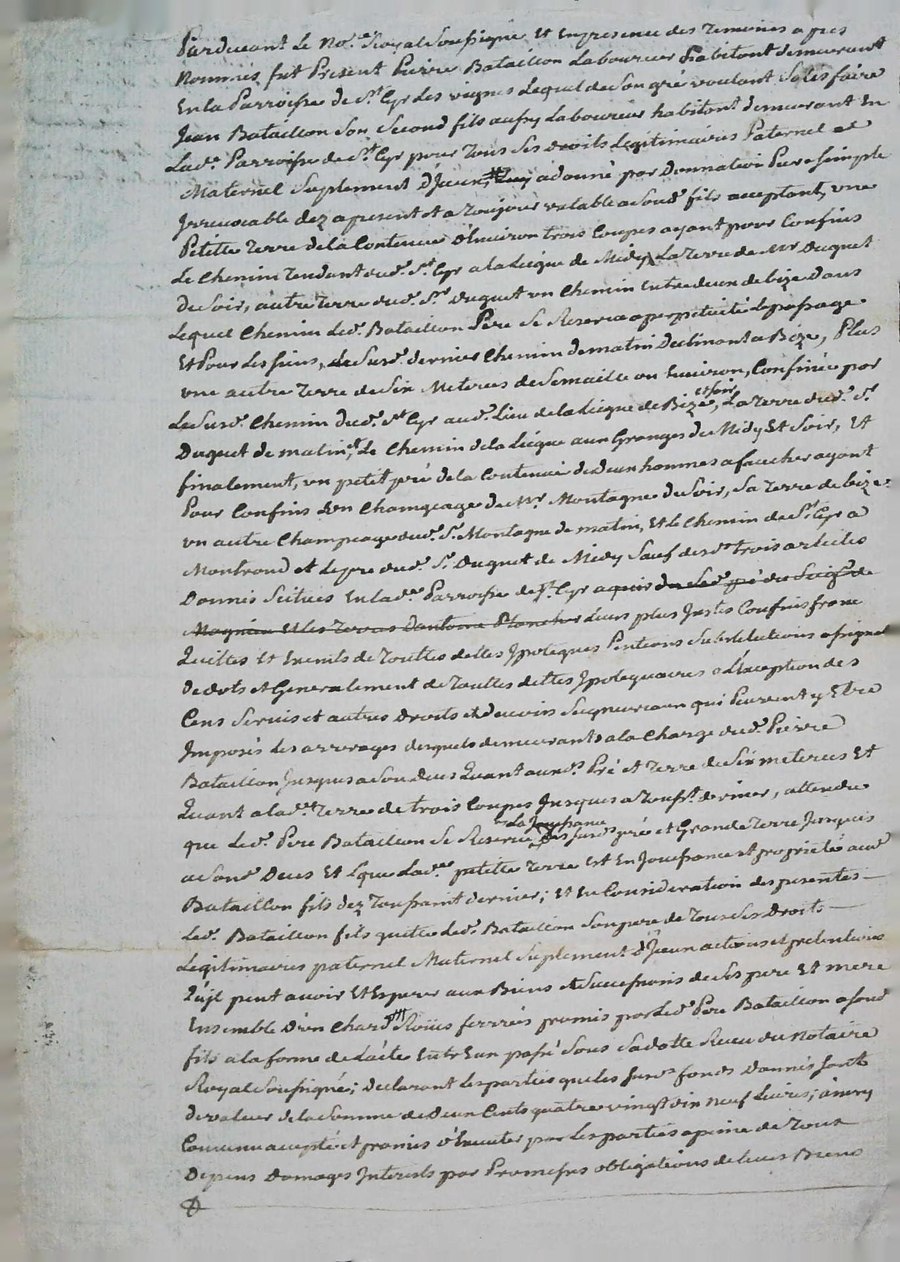 Pardevant Le No.re Royal Soussigné Et En presence des Temoins apres
Nommés, fut Present Pierre Bataillon Laboureur habitant demeurant
En la Parroisse de S.t Cyr Les vignes Lequel de Son gré voulant Satisfaire
Jean Bataillon Son Second fils aussy Laboureur habitant demeurant En
Lad.e Parroisse de S.t Cyr pour Tous Ses droits Légitimaires Paternel et
Maternel Suplement D'Iceux, a donné par Donnation Pure Simple
Irrevocable dez apresent et a Toujour valable a Sond.t fils acceptant, une
Petitte Terre de la Contenue d'Environ trois Coupes ayant pour Confins
Le Chemin Tendant dud.t S.t Cyr a la Liegue de Midy, La Terre de Mr Duguet
du Soir, autre Terre dud.t S.r Duguet un Chemin Entredeux de bize Dans
Lequel Chemin Led.t Bataillon Pere Se Reserve a perpetuité Le passage
Et Pour Les siens, Le Susd.t dernier Chemin de matin Declinant a Bize, Plus
une autre Terre de Six Meteres de Semaille ou Environ, Confinée par
Le Susd.t Chemin dud.t S.t Cyr aud.t Lieu de la Liegue de Bize et soir, La Terre dud.t S.r
Duguet de matin, Le Chemin de la Liegue aux Granges de Midy Et Soir, Et
finalement, un petit pré de la Contenue de Deux hommes a faucher ayant
Pour Confins Un Champeage de Mr Montagne du Soir, Sa Terre de bize
un autre Champeage dud.t S.r Montagne de matin, Et Le Chemin de S.t Cyr a
Montrond et Le pré dud.t S.r Duguet de Midy Sauf desd.ts trois articles
Donnés Scitués En lad.e Parroisse de S.t Cyr
Et Les Terres d'antoine Plancher Leurs plus Justes Confins franc
Quittes Et Exempts de Touttes dettes Ypoteques Pentions Substitutions
De dots et Generalement de Touttes dettes Ypotequaires a L'exception des
Cens Servis et autres Droits et devoirs Seigneuriaux qui Peuvent y Etre
Imposés Les arrerages desquels demeurants a la Charge dud.t Pierre
Bataillon Jusques a Son deces Quant auxd.ts Pré et Terre de Six meteres Et
Quant a lad.te Terre de trois Coupes Jusques a Toussts dernier, attendu
que Led.t Pere Bataillon Se Reserve La Jouissance des susd.ts pré et Grande Terre Jusques
a Sond.t Deces Et que Lad.te petitte Terre Est En Jouissance et propriété aud.t
Bataillon fils dez Toussaint dernier; Et En Consideration des presentes
Led.t Bataillon fils quitte Led.t Bataillon Son pere de Tous Ses Droits
Légitimaires paternel Maternel Suplement D'Iceux actions et pretentions
Qu'il peut avoir Et Esperer aux Biens et Successions de Ses pere Et mere
Ensemble D'un Char Roües ferrées promis par Led.t Pere Bataillon a Sond.t
fils a la forme de L'acte Entr'Eux passé Sous Sa datte Receu du Notaire
Royal Soussigné; Declarant Les parties que Les Susd.ts fonds Donnés Sont
de valeur de la Somme de Deux Cents quatre vingt dix Neuf Livres; ainsy
Convenu accepté et promis d'Executer par Les parties a peine de Tous
Depens Domages Interests par Promesses obligations de Leurs Biens